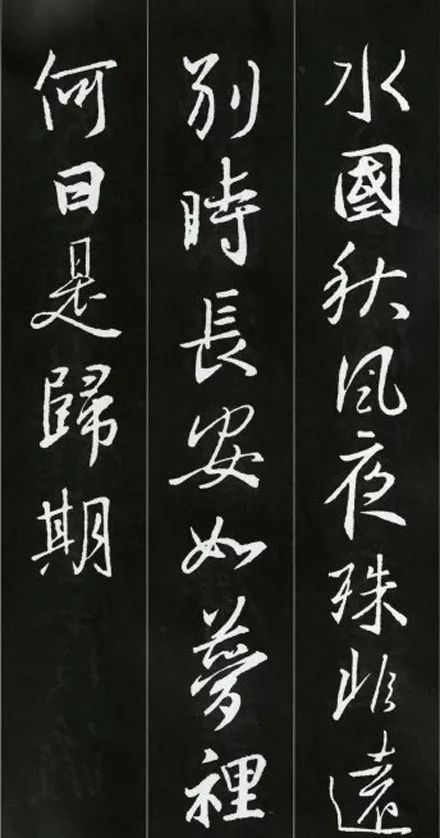 水國秋风夜殊非遠
別時長安如夢裡
何日是歸期